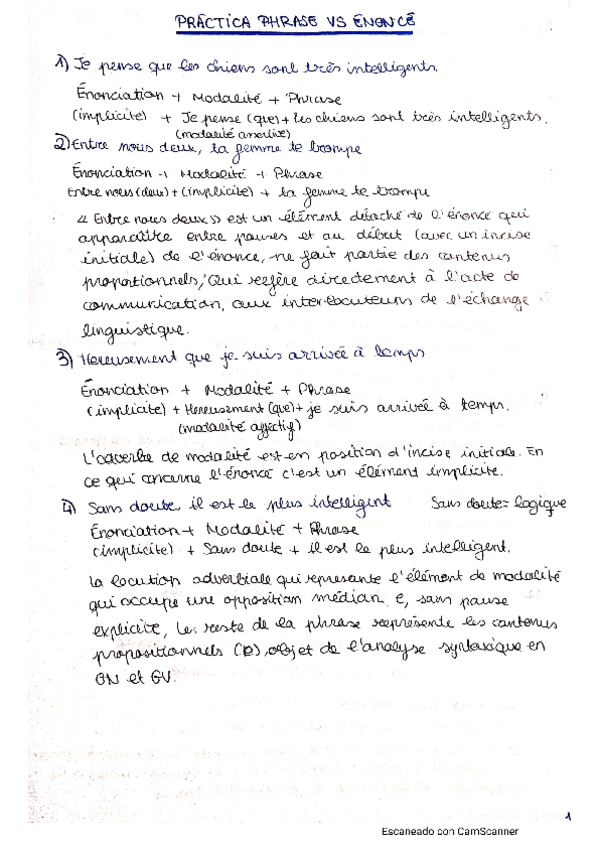 PRÁCTICA PHRASE VS ÉNONCÉ
1) Je pense que les chiens sont très intelligents.
Énonciation + Modalité + Phrase
(implicite) + Je pense (que) + les chiens sont très intelligents.
(modalité assertive)
2) Entre nous deux, ta femme te trompe
Énonciation + Modalité + Phrase
Entre nous (deux) + (implicite) + ta femme te trompe
« Entre nous deux » est un élément détaché de l'énoncé qui
apparaître entre pauses et au début (avec un incise
initiale) de l'énoncé, ne fait partie des contenus
propositionnels, Qui refère directement à l'acte de
communication, aux interlocuteurs de l'échange
linguistique.
3) Hereusement que je suis arrivée à temps
Énonciation + Modalité + Phrase
(implicite) + Hereusement (que) + je suis arrivée à temps.
(modalité affectif)
L'adverbe de modalité est en position d'incise initiale. En
ce qui concerne l'énoncé c'est un élément implicite.
4) Sans doute, il est le plus intelligent Sans doute = logique
Énonciation + Modalité + Phrase
(implicite) + Sans doute + il est le plus intelligent.
La locution adverbiale qui represante l'élément de modalité
qui occupe une opposition médian e, sans pause
explicite, Le reste de la phrase représente les contenus
propositionnels (P), objet de l'analyse syntaxique en
GN et GV.
1
Escaneado con CamScanner